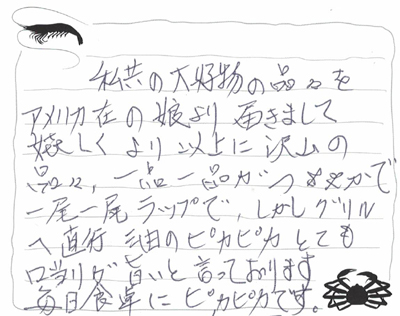 私共の大好物の品々を
アメリカ在の娘より届きまして
嬉しくより以上に沢山の
品々、一品一品がつややかで
一尾一尾ラップで、しかしグリル
へ直行 油のピカピカとても
口当りが旨いと言っております
毎日食卓にピカピカです。